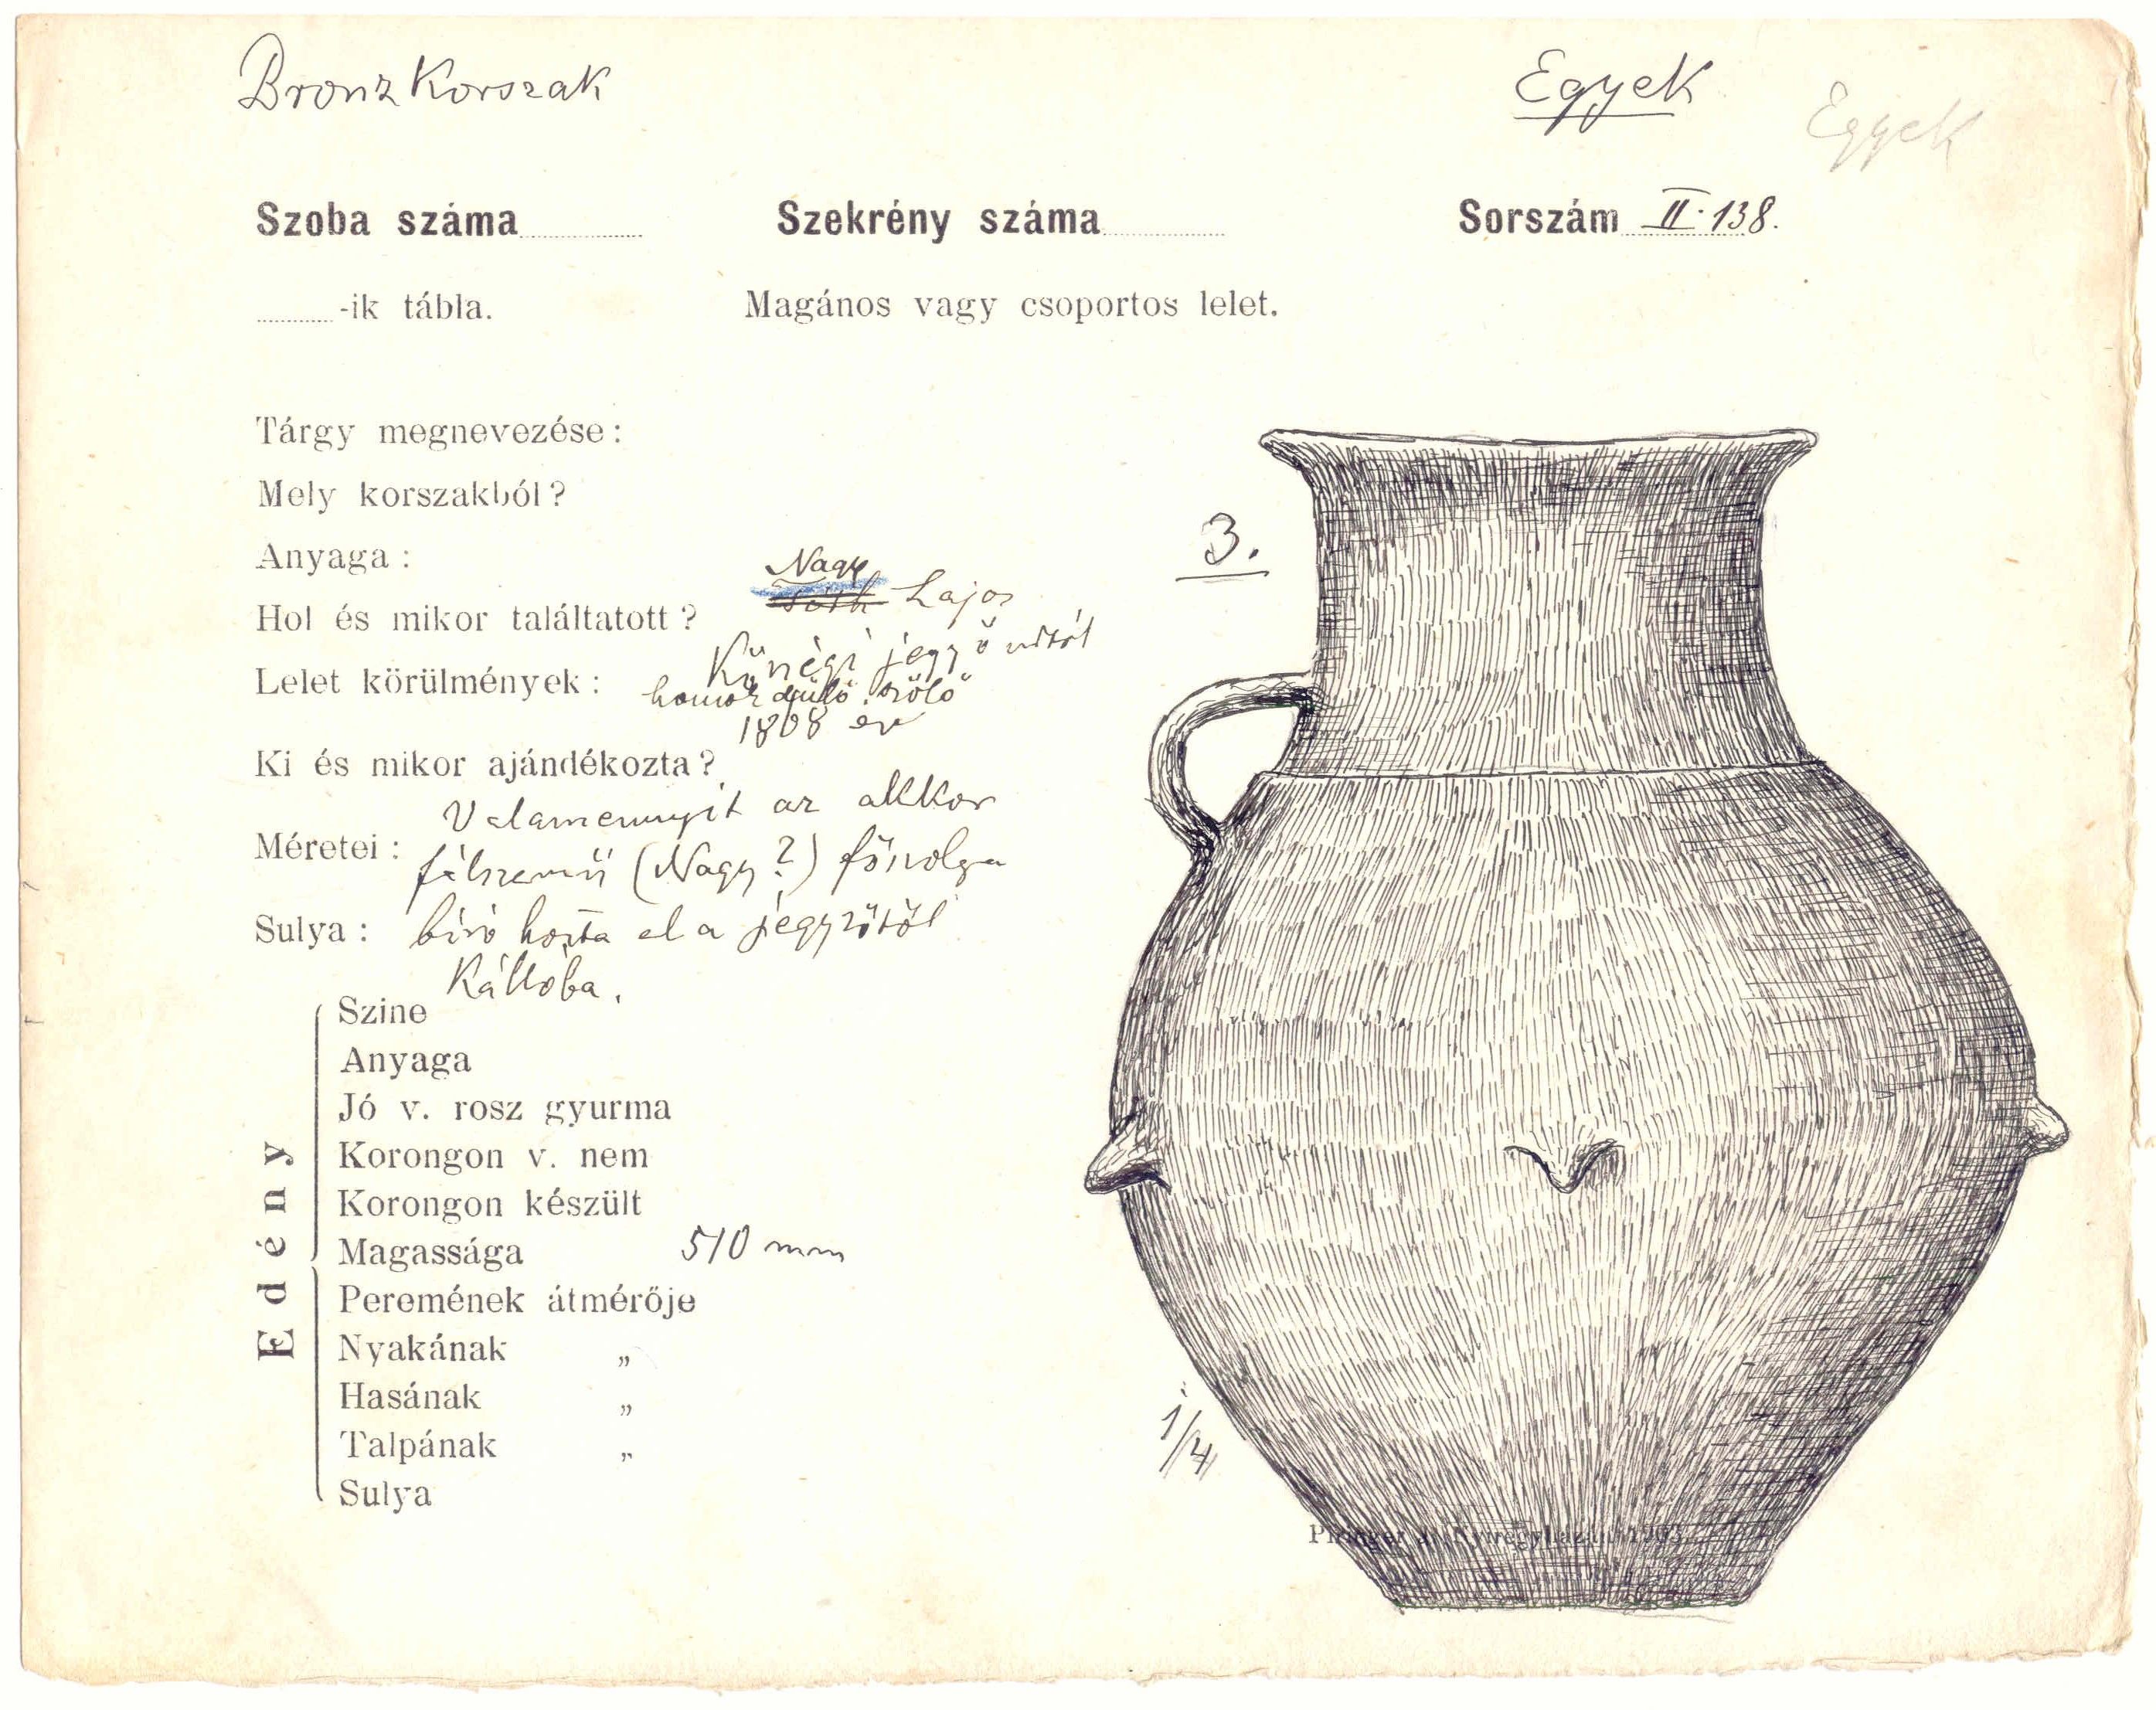 Bronz Korszak
Egyek
Egyek
Szoba száma
Szekrény száma
Sorszám II. 138.
-ik tábla.
Magános vagy csoportos lelet.
Tárgy megnevezése:
Mely korszakból?
Anyaga:
Hol és mikor találtatott?
Nagy
Lajos
Lelet körülmények:
jegyző
1808 év
Ki és mikor ajándékozta?
Valamennyit az akkor
Méretei:
félszemű (Nagy?) főszolga
Sulya:
bíró hozta el a jegyzőtől
Kállóba.
3.
Edény
Szine
Anyaga
Jó v. rosz gyurma
Korongon v. nem
Korongon készült
Magassága 510 mm
Peremének átmérője
Nyakának „
Hasának „
Talpának „
Sulya
1/4
Piringer J. Nyiregyházán 1903